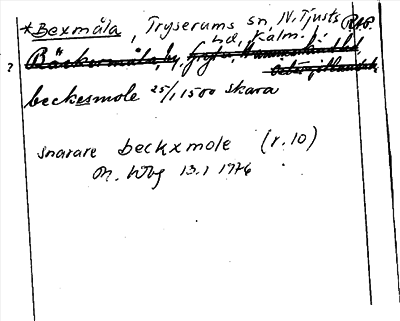 *Bexmåla, Tryserums sn, N. Tjusts
hd, Kalm. l.
? Bäckermåla, by,
beckesmole 25/1 1500 Skara
snarare beckxmole (r. 10)
13.1 1976